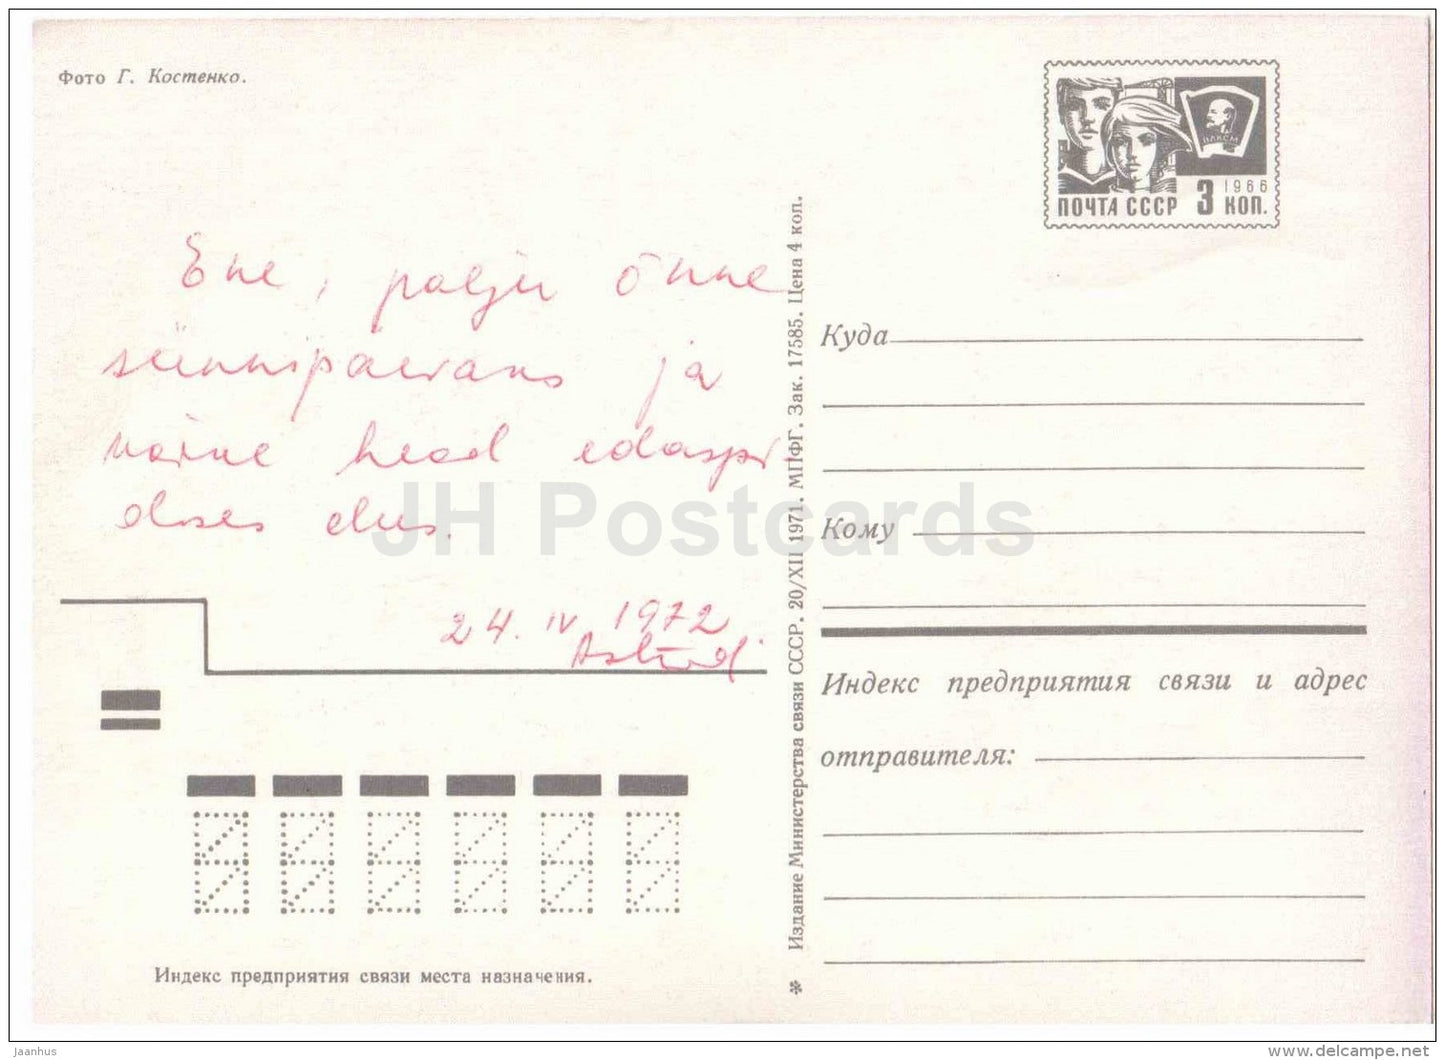 Фото Г. Костенко.
ВЛКСМ
1966
ПОЧТА СССР 3 КОП.
Ene, palju õnne
sünnipäevaks ja
kõike head edaspi-
dises elus.
24. IV 1972
Astrid
Издание Министерства связи СССР. 20/XII 1971. МПФГ. Зак. 17585. Цена 4 коп.
Куда
Кому
Индекс предприятия связи и адрес
отправителя:
Индекс предприятия связи места назначения.
JH Postcards
jaanhus
delcampe.net